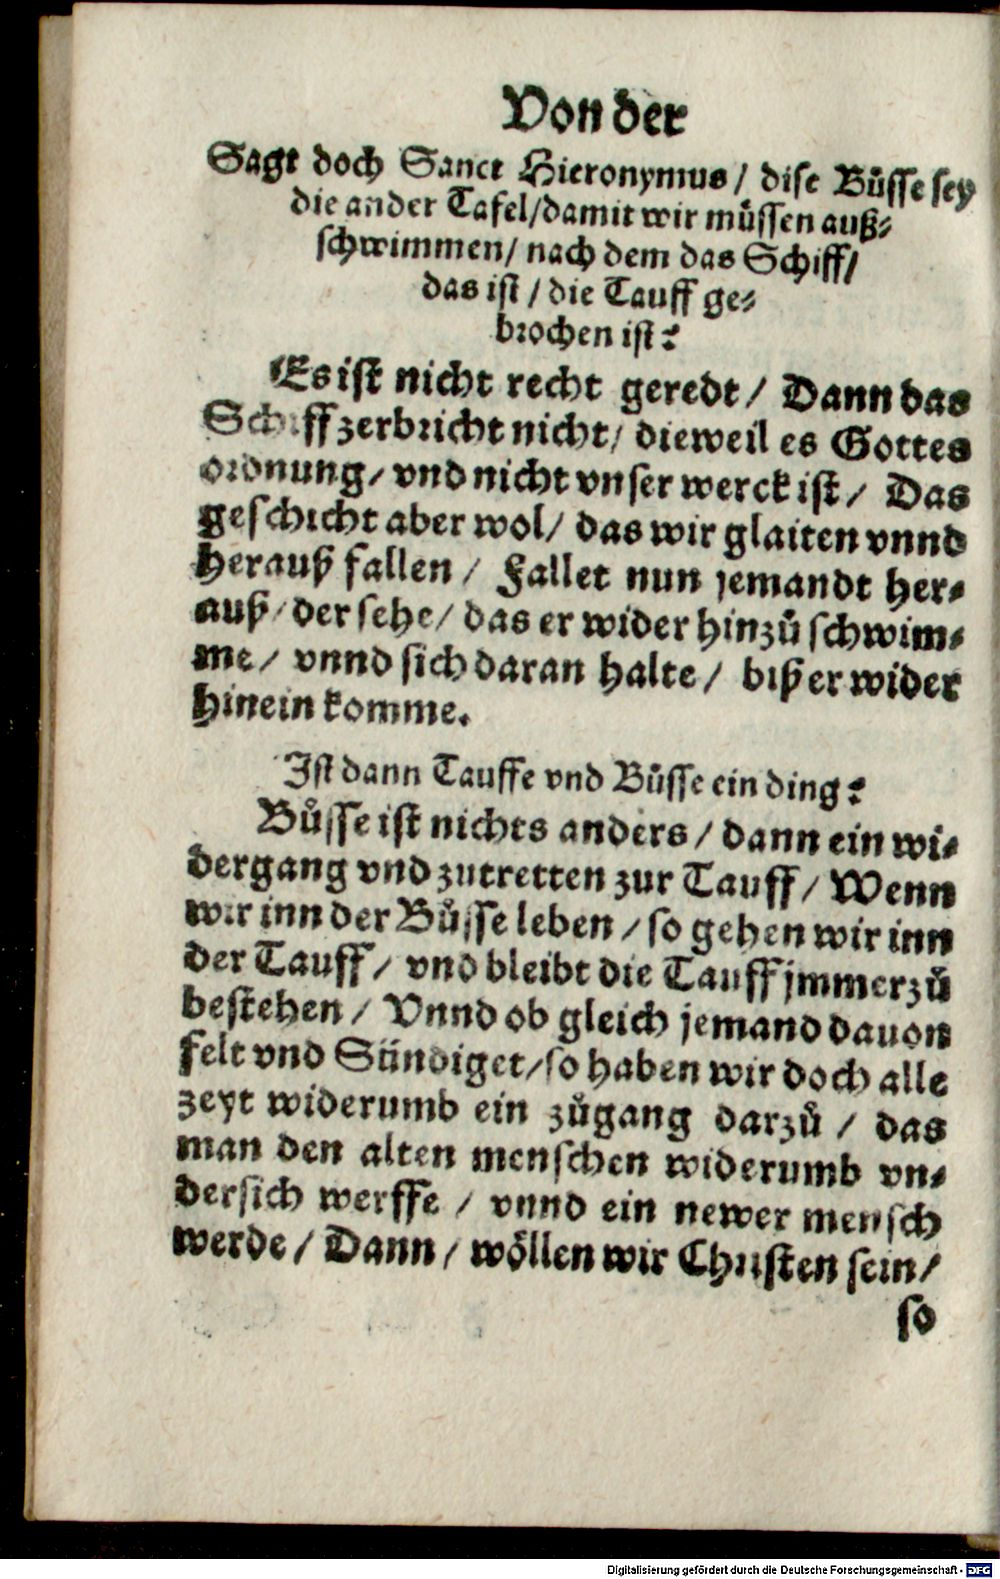 Von der
Sagt doch Sanct Hieronymus / dise Bůsse sey
die ander Tafel/damit wir můssen auß⸗
schwimmen/ nach dem das Schiff/
das ist / die Tauff ge⸗
brochen ist?
Es ist nicht recht geredt / Dann das
Schiff zerbricht nicht/ dieweil es Gottes
ordnung/ vnd nicht vnser werck ist / Das
geschicht aber wol/ das wir glaiten vnnd
herauß fallen / Fallet nun jemandt her⸗
auß/ der sehe/ das er wider hinzů schwim⸗
me/ vnnd sich daran halte/ biß er wider
hinein komme.
Ist dann Tauffe vnd Bůsse ein ding?
Bůsse ist nichts anders / dann ein wi⸗
dergang vnd zutretten zur Tauff/ Wenn
wir inn der Bůsse leben / so gehen wir inn
der Tauff/ vnd bleibt die Tauff jmmerzů
bestehen / Vnnd ob gleich jemand dauon
felt vnd Sündiget/so haben wir doch alle
zeyt widerumb ein zůgang darzů / das
man den alten menschen widerumb vn⸗
dersich werffe / vnnd ein newer mensch
werde/ Dann/ wöllen wir Christen sein/
so
Digitalisierung gefördert durch die Deutsche Forschungsgemeinschaft - DFG